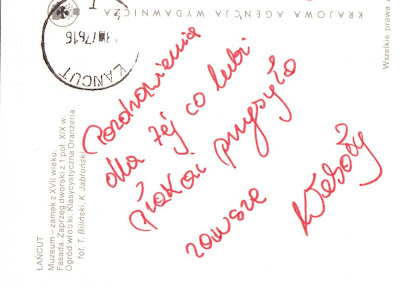 KRAJOWA AGENCJA WYDAWNICZA
Wszelkie prawa
ŁAŃCUT
Pozdrowienia
dla tej co lubi
płakać przysyła
zawsze
Wesoły
ŁAŃCUT
Muzeum – zamek z XVII wieku.
Fasada. Zaprzęg dworski z 1 poł. XIX w.
Ogród włoski. Klasycystyczna Oranżeria.
fot. T. Biliński, K. Jabłoński